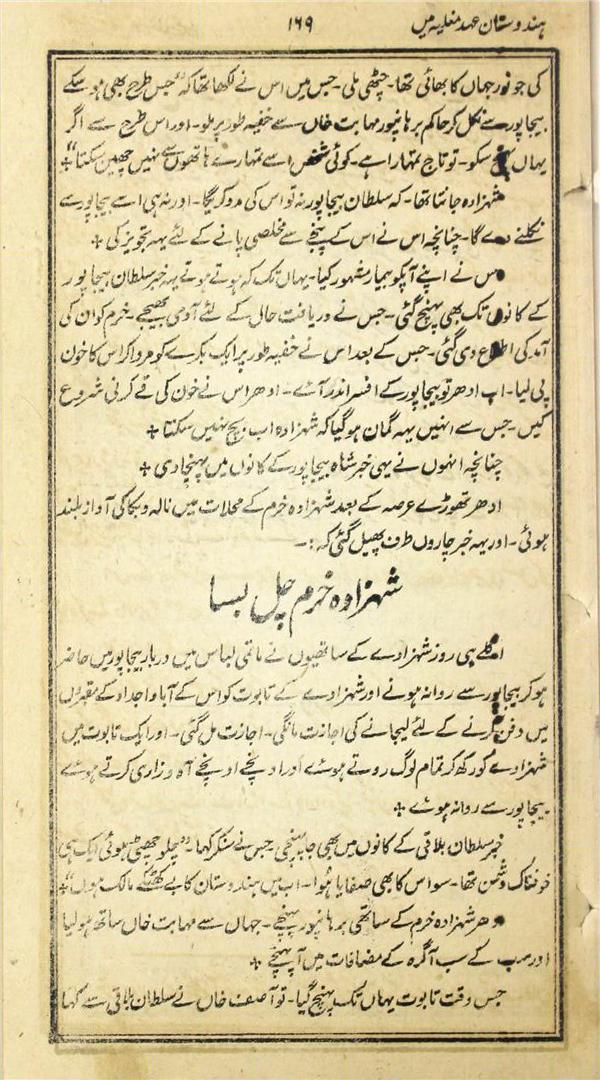 ہندوستان عہد مغلیہ میں ۱۶۹
کی جو نور جہاں کا بھائی تھا۔ چٹھی ملی۔ جس میں اس نے لکھا تھا کہ "جس طرح بھی ہو سکے
بیجاپور سے نکل کر حاکم برہانپور مہابت خاں سے خفیہ طور پر ملو۔ اور اس طرح سے اگر
یہاں پہنچ سکو۔ تو تاج تمہارا ہے۔ کوئی شخص اسے تمہارے ہاتھوں سے نہیں چھین سکتا"+
شہزادہ جانتا تھا۔ کہ سلطان بیجاپور نہ تو اس کی مدد کریگا۔ اور نہ ہی اسے بیجاپور سے
نکلنے دے گا۔ چنانچہ اس نے اس کے پنجے سے مخلصی پانے کے لئے یہہ تجویز کی +
اس نے اپنے آپکو بیمار مشہور کیا۔ یہاں تک کہ ہوتے ہوتے یہہ خبر سلطان بیجا پور
کے کانوں تک بھی پہنچ گئی۔ جس نے دریافت حال کے لئے آدمی بھیجے۔ خرم کو ان کی
آمد کی اطلاع دی گئی۔ جس کے بعد اس نے خفیہ طور پر ایک بکرے کو مروا کر اس کا خون
پی لیا۔ اب ادھر تو بیجاپور کے افسر اندر آئے۔ ادھر اس نے خون کی قے کرنی شروع
کیں۔ جس سے انہیں یہہ گمان ہو گیا کہ شہزادہ اب بچ نہیں سکتا +
چنانچہ انہوں نے یہی خبر شاہ بیجاپور کے کانوں میں پہنچا دی +
ادھر تھوڑے عرصہ کے بعد شہزادہ خرم کے محلات میں نالہ و بکا کی آواز بلند
ہوئی۔ اور یہہ خبر چاروں طرف پھیل گئی کہ :۔
شہزادہ خرم چل بسا
اگلے ہی روز شہزادے کے ساتھیوں نے ماتمی لباس میں دربار بیجاپور میں حاضر
ہو کر بیجاپور سے روانہ ہونے اور شہزادے کے تابوت کو اس کے آبا و اجداد کے مقبروں
میں دفن کرنے کے لئے لیجانے کی اجازت مانگی۔ اجازت مل گئی۔ اور ایک تابوت میں
شہزادے کو رکھ کر تمام لوگ روتے ہوئے اور اونچے اونچے آہ و زاری کرتے ہوئے
بیجاپور سے روانہ ہوئے +
خبر سلطان بلاقی کے کانوں میں بھی جا پہنچی۔ جس نے سنکر کہا۔ "چلو چھٹی ہوئی ایک ہی
خوفناک دشمن تھا۔ سو اس کا بھی صفایا ہوا۔ اب میں ہندوستان کا بے کھٹکے مالک ہوں"+
ادھر شہزادہ خرم کے ساتھی برہانپور پہنچے۔ جہاں سے مہابت خاں ساتھ ہو لیا
اور سب کے سب آگرہ کے مضافات میں آ پہنچے +
جس وقت تابوت یہاں تک پہنچ گیا۔ تو آصف خاں نے سلطان بلاقی سے کہا